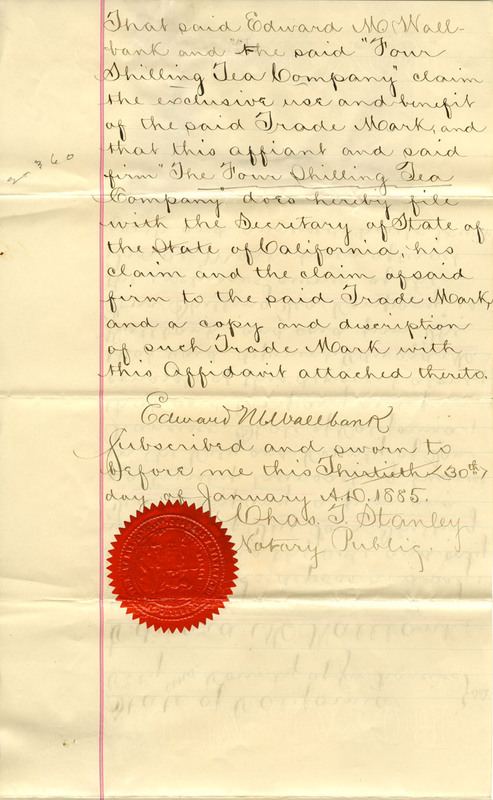 That said Edward M. Wall-
bank and "the said "Four
Shilling Tea Company" claim
the exclusive use and benefit
of the said Trade Mark, and
that this affiant and said
firm "The Four Shilling Tea
Company" does hereby file
with the Secretary of State of
the State of California, his
claim and the claim of said
firm to the said Trade Mark,
and a copy and discription
of such Trade Mark with
this Affidavit attached thereto.
Edward M Wallbank
Subscribed and sworn to
before me this Thirtieth (30th)
day of January A.D. 1885.
Chas. T. Stanley
Notary Public.
2360